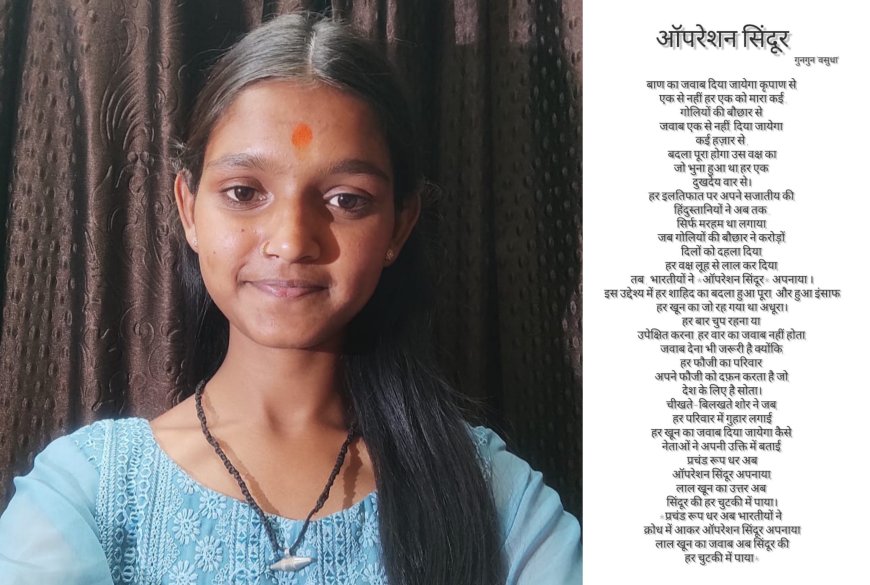 ऑपरेशन सिंदूर
गुनगुन वसुधा
बाण का जवाब दिया जायेगा कृपाण से
एक से नहीं हर एक को मारा कई
गोलियों की बौछार से
जवाब एक से नहीं दिया जायेगा
कई हज़ार से
बदला पूरा होगा उस वक्ष का
जो भुना हुआ था हर एक
दुखदेय वार से।
हर इलतिफात पर अपने सजातीय की
हिंदुस्तानियों ने अब तक
सिर्फ मरहम था लगाया
जब गोलियों की बौछार ने करोड़ों
दिलों को दहला दिया
हर वक्ष लूह से लाल कर दिया
तब भारतीयों ने "ऑपरेशन सिंदूर" अपनाया ।
इस उद्देश्य में हर शाहिद का बदला हुआ पूरा और हुआ इंसाफ
हर खून का जो रह गया था अधूरा।
हर बार चुप रहना या
उपेक्षित करना हर वार का जवाब नहीं होता
जवाब देना भी जरूरी है क्योंकि
हर फौजी का परिवार
अपने फौजी को दफ़न करता है जो
देश के लिए है सोता।
चीखते-बिलखते शोर ने जब
हर परिवार में गुहार लगाई
हर खून का जवाब दिया जायेगा कैसे
नेताओं ने अपनी उक्ति में बताई
प्रचंड रूप धर अब
ऑपरेशन सिंदूर अपनाया
लाल खून का उत्तर अब
सिंदूर की हर चुटकी में पाया।
"प्रचंड रूप धर अब भारतीयों ने
क्रोध में आकर ऑपरेशन सिंदूर अपनाया
लाल खून का जवाब अब सिंदूर की
हर चुटकी में पाया"